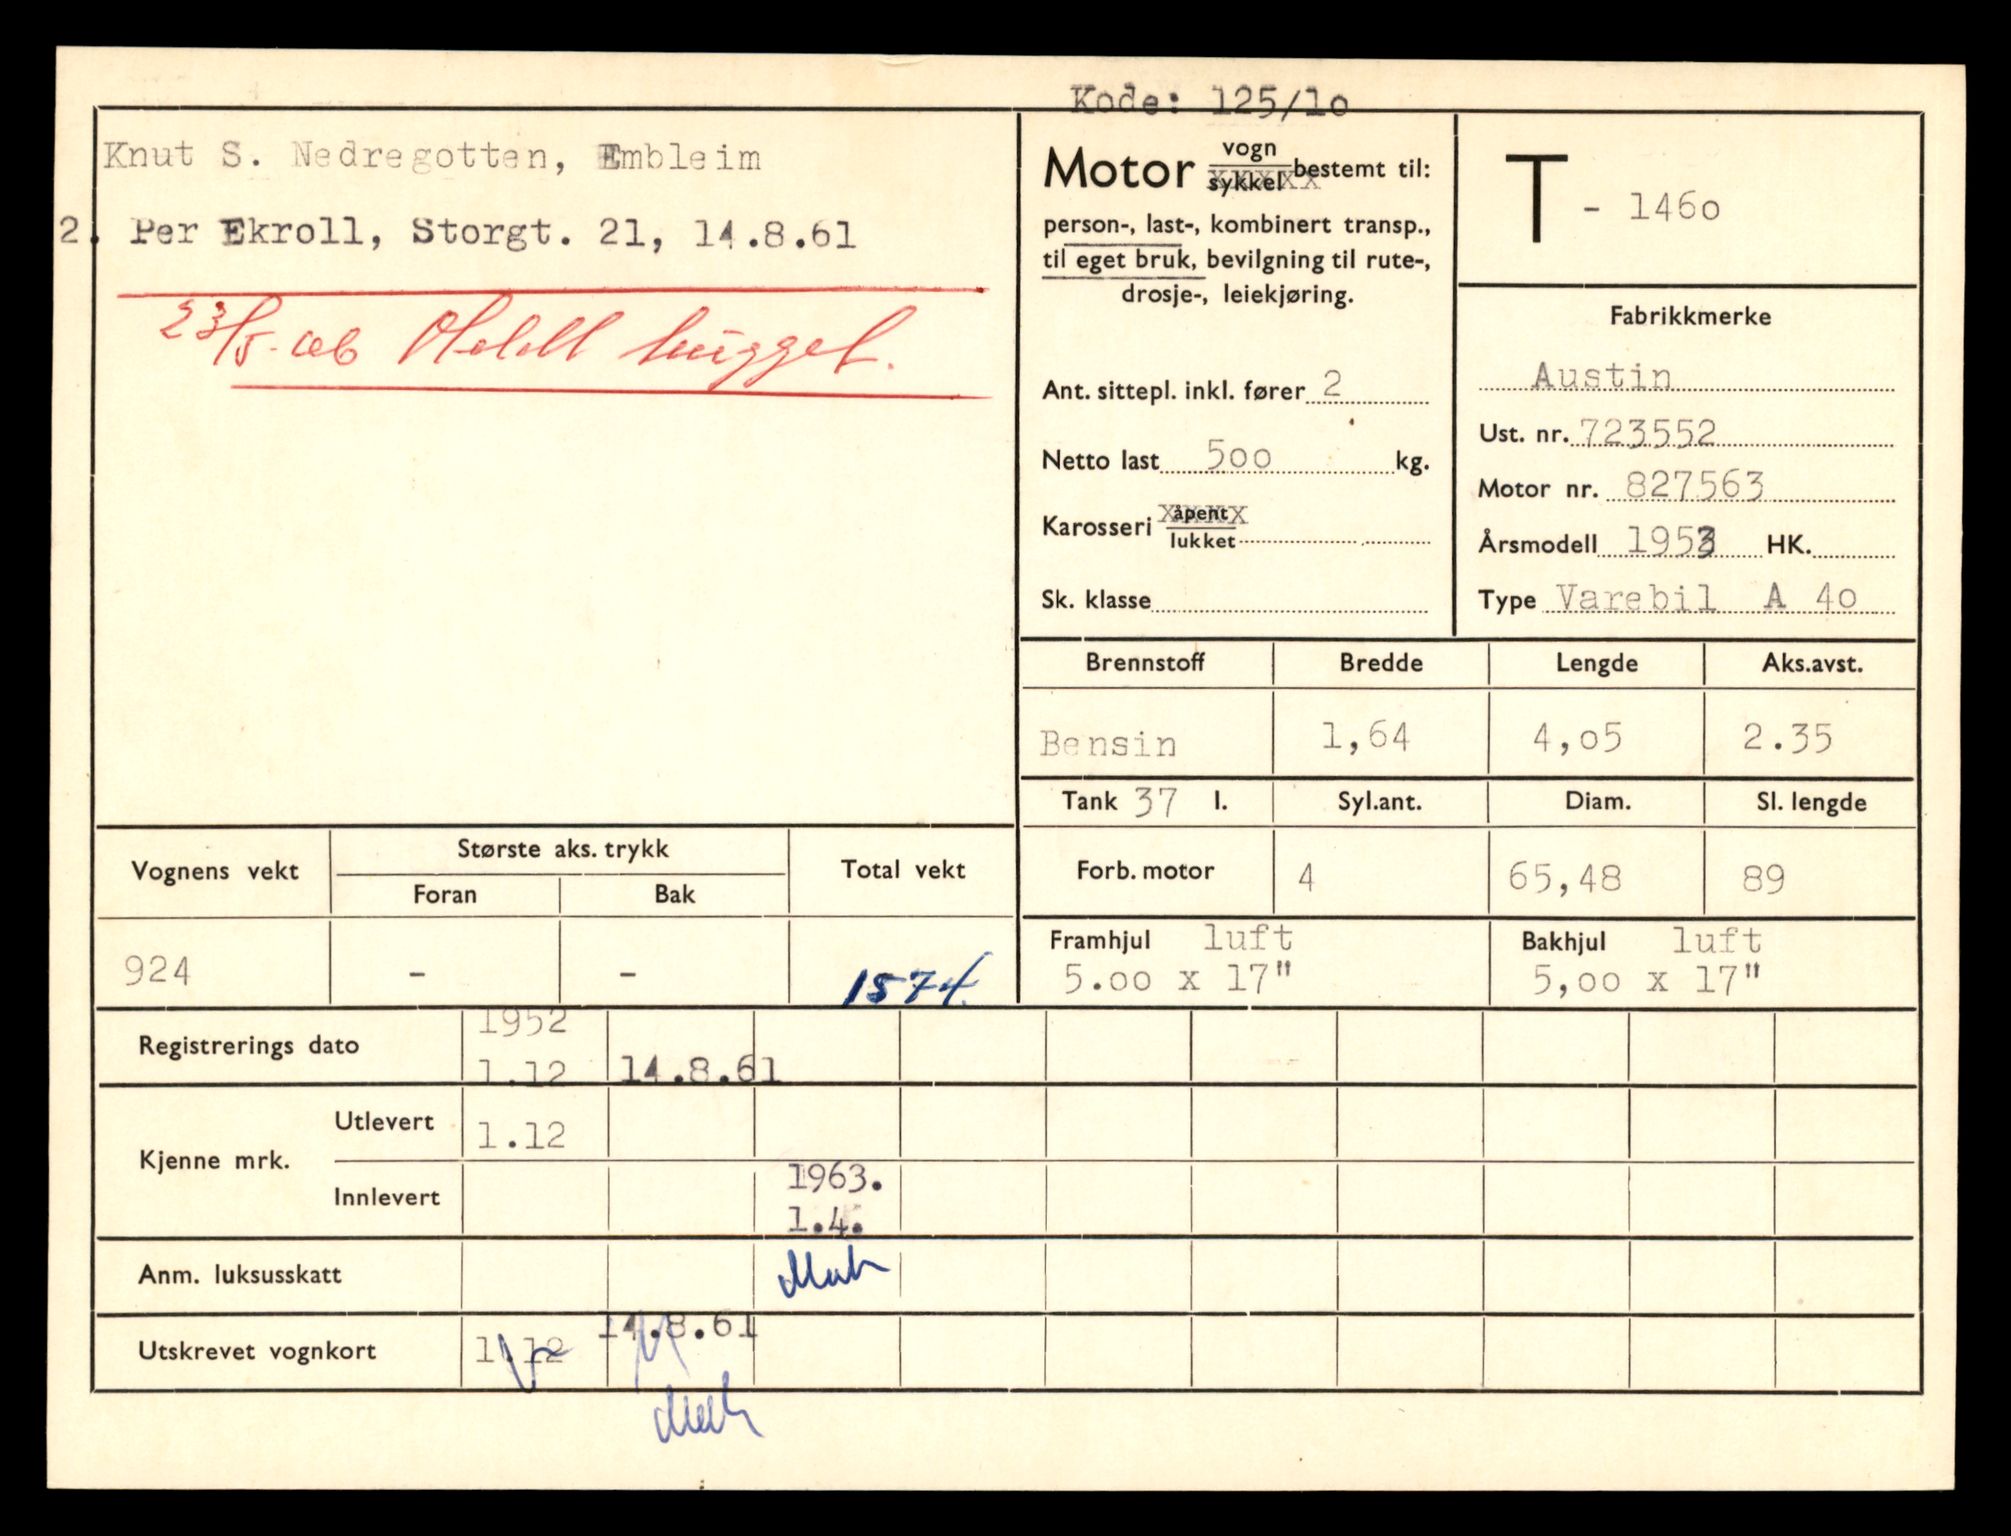 Kode: 125/1o
Knut S. Nedregotten, Embleim
2. Per Ekroll, Storgt. 21, 14.8.61
23/5-
hugget.
Motor vogn bestemt til:
sykkel
person-, last-, kombinert transp.,
til eget bruk, bevilgning til rute-,
drosje-, leiekjøring.
Ant. sittepl. inkl. fører 2
Netto last 5oo kg.
Karosseri åpent
lukket
Sk. klasse
T - 146o
Fabrikkmerke
Austin
Ust. nr. 723552
Motor nr. 827563
Årsmodell 1953 HK.
Type Varebil A 4o
Brennstoff Bredde Lengde Aks.avst.
Bensin 1,64 4,o5 2.35
Tank 37 l. Syl.ant. Diam. Sl. lengde
Forb. motor 4 65,48 89
Framhjul luft Bakhjul luft
5.oo x 17" 5,oo x 17"
Vognens vekt Største aks. trykk Total vekt
Foran Bak
924 - - 1574.
Registrerings dato 1952
1.12 14.8.61
Kjenne mrk. Utlevert 1.12
Innlevert 1963.
1.4.
Anm. luksusskatt
Utskrevet vognkort 1.12 14.8.61